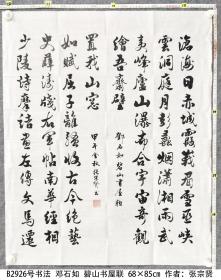 滄海日赤城霞峨眉雪巫峽
雲洞庭月彭蠡煙瀟湘雨武
夷峰廬山瀑布合宇宙奇觀
繪吾齋壁
鄧石如碧山書屋聯
少陵詩摩詰畫左傳文馬遷
史薛濤箋右軍帖南華經相
如賦屈子離騷收古今絕藝
置我山窗
甲午金秋張宗賢書
B2926号书法 邓石如 碧山书屋联 68×85cm 作者：张宗贤